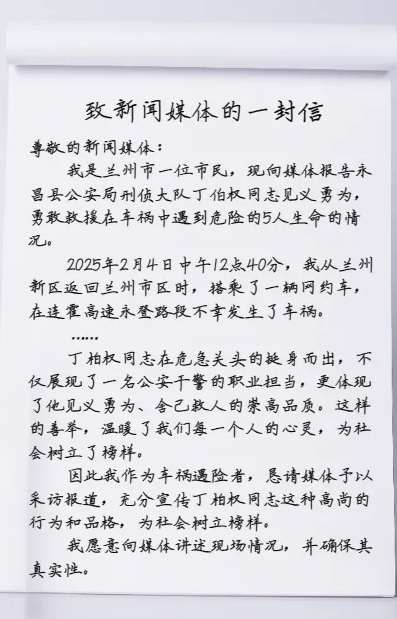 致新闻媒体的一封信
尊敬的新闻媒体：
我是兰州市一位市民，现向媒体报告永
昌县公安局刑侦大队丁伯权同志见义勇为，
勇敢救援在车祸中遇到危险的5人生命的情
况。
2025年2月4日中午12点40分，我从兰州
新区返回兰州市区时，搭乘了一辆网约车，
在连霍高速永登路段不幸发生了车祸。
……
丁柏权同志在危急关头的挺身而出，不
仅展现了一名公安干警的职业担当，更体现
了他见义勇为、舍己救人的崇高品质。这样
的善举，温暖了我们每一个人的心灵，为社
会树立了榜样。
因此我作为车祸遇险者，恳请媒体予以
采访报道，充分宣传丁柏权同志这种高尚的
行为和品格，为社会树立榜样。
我愿意向媒体讲述现场情况，并确保其
真实性。